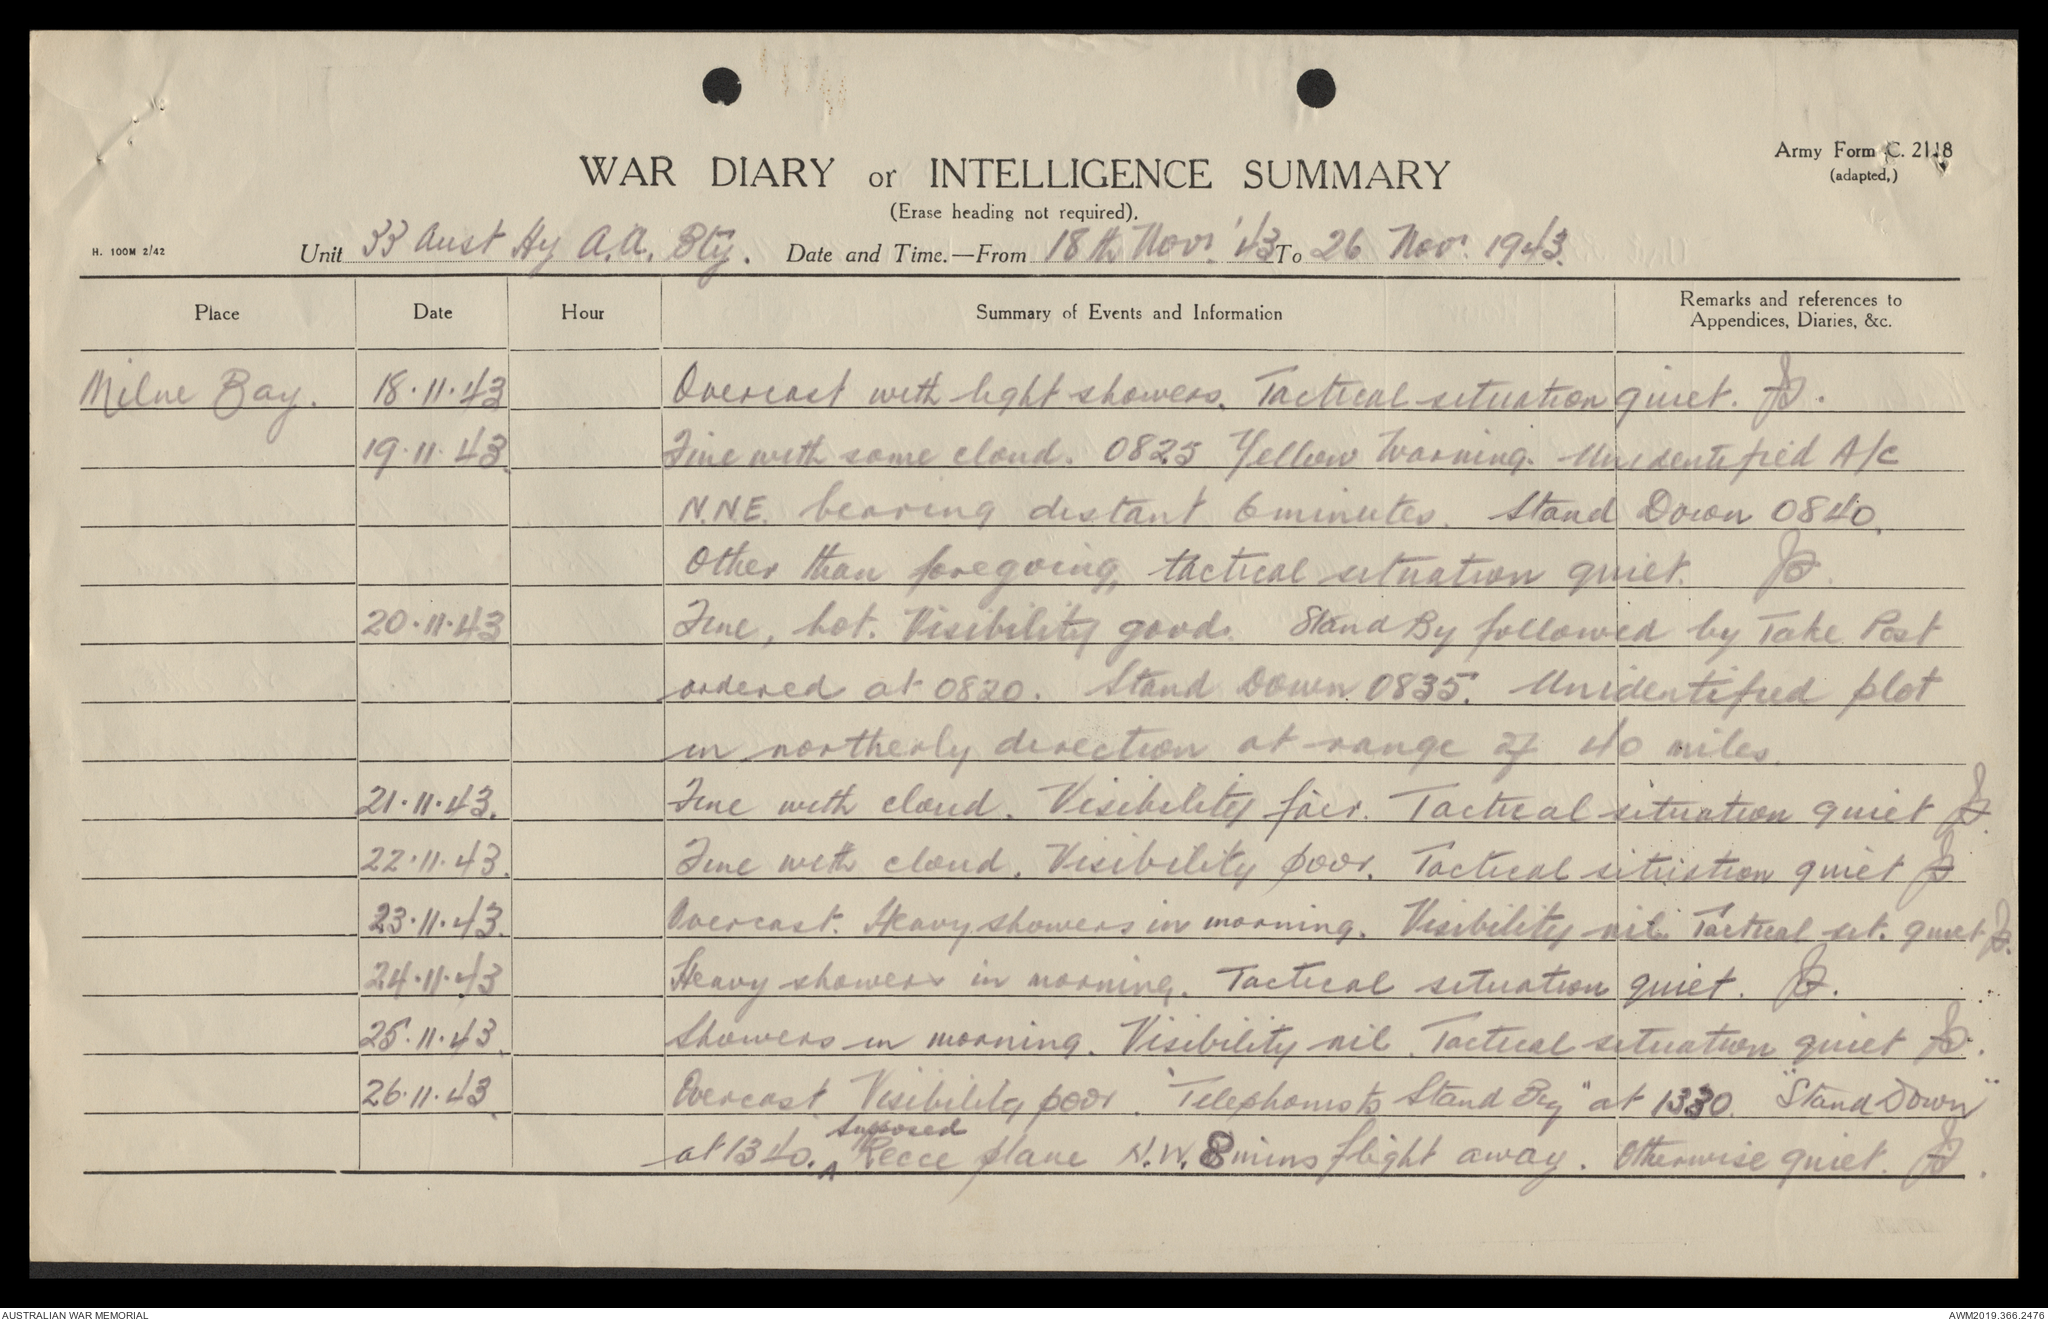 Army Form C. 2118
(adapted,)
WAR DIARY or INTELLIGENCE SUMMARY
(Erase heading not required).
H. 100M 2/42
Unit 33 Aust Hy A.A. Bty. Date and Time.—From 18th Nov. '43 To 26 Nov. 1943.
Place Date Hour Summary of Events and Information Remarks and references to
Appendices, Diaries, &c.
Milne Bay. 18.11.43 Overcast with light showers. Tactical situation quiet.
19.11.43. Fine with some cloud. 0825 Yellow Warning. Unidentified A/c
N.N.E. bearing distant 6 minutes. Stand Down 0840.
Other than foregoing, tactical situation quiet.
20.11.43 Fine, hot. Visibility good. Stand By followed by Take Post
ordered at 0820. Stand Down 0835. Unidentified plot
in northerly direction at range of 40 miles.
21.11.43. Fine with cloud. Visibility fair. Tactical situation quiet
22.11.43. Fine with cloud. Visibility poor. Tactical situation quiet
23.11.43. Overcast. Heavy showers in morning. Visibility nil. Tactical sit. quiet
24.11.43 Heavy showers in morning. Tactical situation quiet.
25.11.43. Showers in morning. Visibility nil. Tactical situation quiet
26.11.43. Overcast. Visibility poor. "Telephonists Stand By" at 1330. "Stand Down"
at 1340. supposed Recce plane N.W. 8 mins flight away. Otherwise quiet.
AUSTRALIAN WAR MEMORIAL
AWM2019.366.2476